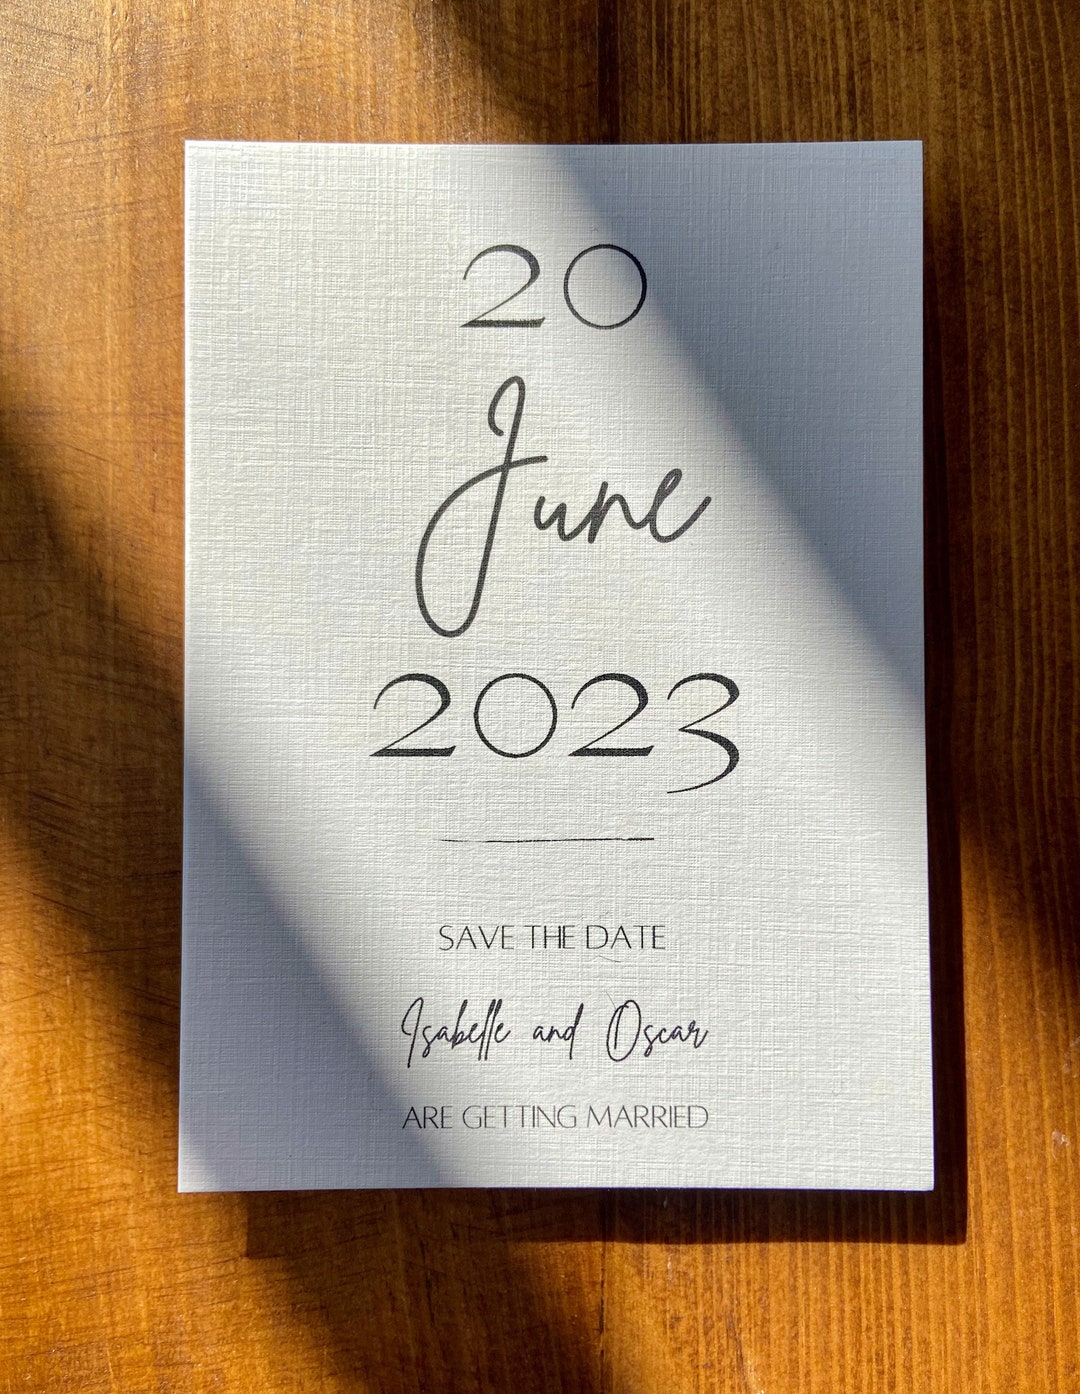 20
June
2023
SAVE THE DATE
Isabelle and Oscar
ARE GETTING MARRIED